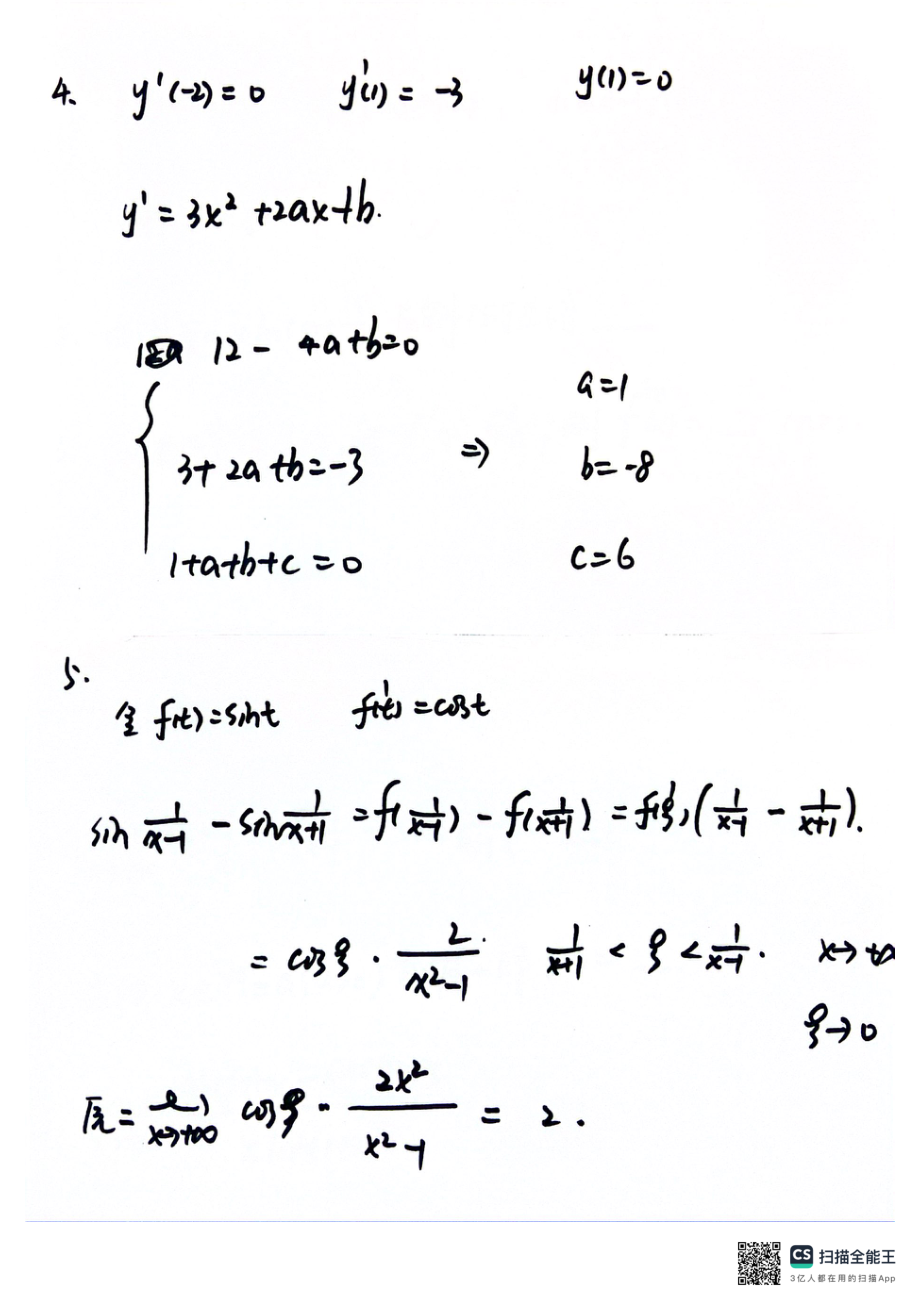 4. y'(-2)=0 y'(1)=-3 y(1)=0
y'=3x²+2ax+b.
12-4a+b=0
a=1
3+2a+b=-3 ⇒ b=-8
1+a+b+c=0 c=6
5.
令 f(t)=sint f'(t)=cost
sin 1/(x-1) - sin 1/(x+1) = f(1/(x-1)) - f(1/(x+1)) = f'(ξ)(1/(x-1) - 1/(x+1)).
= cosξ · 2/(x²-1) 1/(x+1) < ξ < 1/(x-1). x→+∞
ξ→0
原= lim x→+∞ cosξ · 2x²/(x²-1) = 2.
CS 扫描全能王
3亿人都在用的扫描App